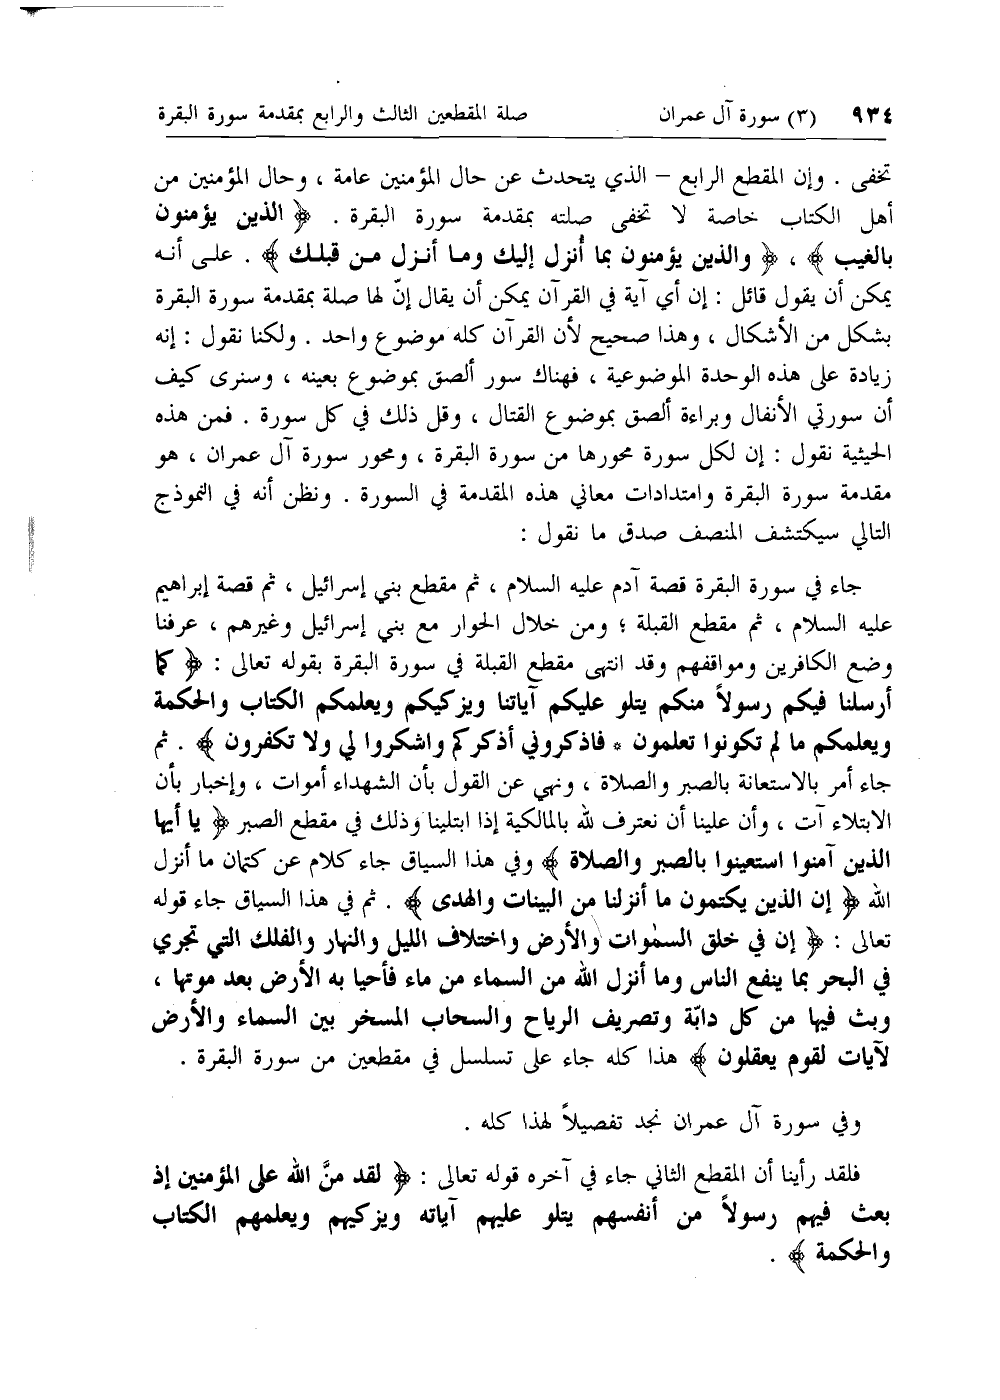 ٩٣٤ (٣) سورة آل عمران صلة المقطعين الثالث والرابع بمقدمة سورة البقرة
تخفى . وإن المقطع الرابع – الذي يتحدث عن حال المؤمنين عامة ، وحال المؤمنين من
أهل الكتاب خاصة لا تخفى صلته بمقدمة سورة البقرة . ﴿ الذين يؤمنون
بالغيب ﴾ ، ﴿ والذين يؤمنون بما أُنزل إليك وما أنزل من قبلك ﴾ . على أنه
يمكن أن يقول قائل : إن أي آية في القرآن يمكن أن يقال إنّ لها صلة بمقدمة سورة البقرة
بشكل من الأشكال ، وهذا صحيح لأن القرآن كله موضوع واحد . ولكنا نقول : إنه
زيادة على هذه الوحدة الموضوعية ، فهناك سور ألصق بموضوع بعينه ، وسنرى كيف
أن سورتي الأنفال وبراءة ألصق بموضوع القتال ، وقل ذلك في كل سورة . فمن هذه
الحيثية نقول : إن لكل سورة محورها من سورة البقرة ، ومحور سورة آل عمران ، هو
مقدمة سورة البقرة وامتدادات معاني هذه المقدمة في السورة . ونظن أنه في النموذج
التالي سيكتشف المنصف صدق ما نقول :
جاء في سورة البقرة قصة آدم عليه السلام ، ثم مقطع بني إسرائيل ، ثم قصة إبراهيم
عليه السلام ، ثم مقطع القبلة ؛ ومن خلال الحوار مع بني إسرائيل وغيرهم ، عرفنا
وضع الكافرين ومواقفهم وقد انتهى مقطع القبلة في سورة البقرة بقوله تعالى : ﴿ كما
أرسلنا فيكم رسولاً منكم يتلو عليكم آياتنا ويزكيكم ويعلمكم الكتاب والحكمة
ويعلمكم ما لم تكونوا تعلمون * فاذكروني أذكركم واشكروا لي ولا تكفرون ﴾ . ثم
جاء أمر بالاستعانة بالصبر والصلاة ، ونهي عن القول بأن الشهداء أموات ، وإخبار بأن
الابتلاء آت ، وأن علينا أن نعترف لله بالمالكية إذا ابتلينا وذلك في مقطع الصبر ﴿ يا أيها
الذين آمنوا استعينوا بالصبر والصلاة ﴾ وفي هذا السياق جاء كلام عن كتمان ما أنزل
الله ﴿ إن الذين يكتمون ما أنزلنا من البينات والهدى ﴾ . ثم في هذا السياق جاء قوله
تعالى : ﴿ إن في خلق السمٰوات والأرض واختلاف الليل والنهار والفلك التي تجري
في البحر بما ينفع الناس وما أنزل الله من السماء من ماء فأحيا به الأرض بعد موتها ،
وبث فيها من كل دابّة وتصريف الرياح والسحاب المسخر بين السماء والأرض
لآيات لقوم يعقلون ﴾ هذا كله جاء على تسلسل في مقطعين من سورة البقرة .
وفي سورة آل عمران نجد تفصيلاً لهذا كله .
فلقد رأينا أن المقطع الثاني جاء في آخره قوله تعالى : ﴿ لقد منَّ الله على المؤمنين إذ
بعث فيهم رسولاً من أنفسهم يتلو عليهم آياته ويزكيهم ويعلمهم الكتاب
والحكمة ﴾ .